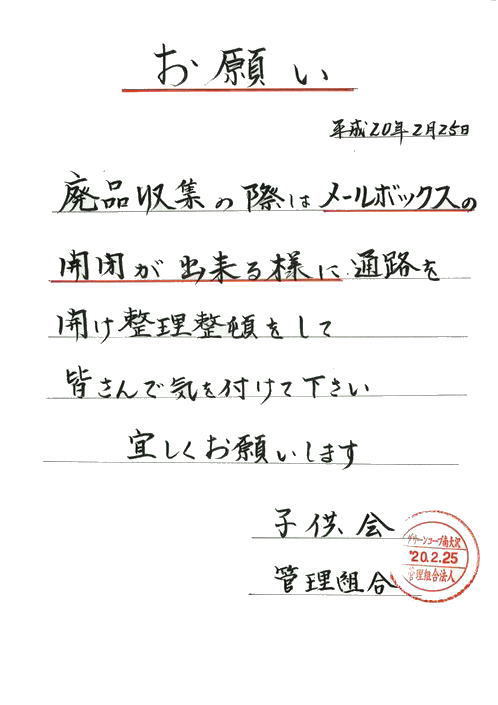 お願い
平成20年2月25日
廃品収集の際はメールボックスの
開閉が出来る様に通路を
開け整理整頓をして
皆さんで気を付けて下さい
宜しくお願いします
子供会
管理組合
グリーンコープ南大沢
'20.2.25
管理組合法人